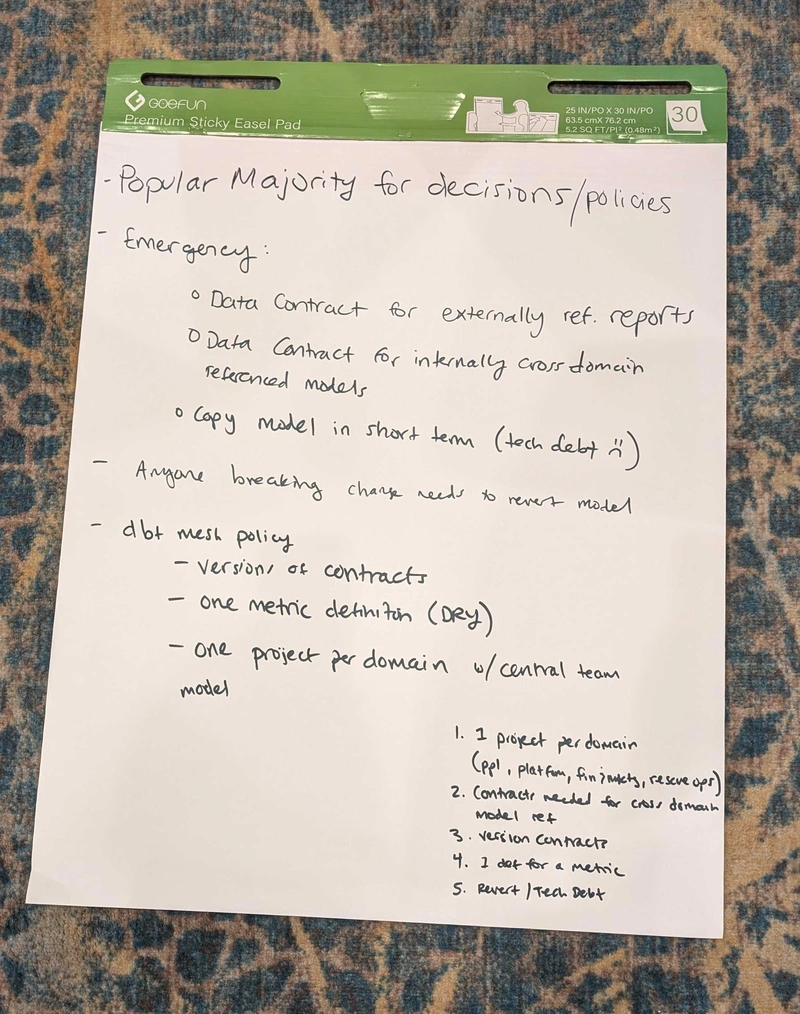 GOEFUN
Premium Sticky Easel Pad
25 IN/PO X 30 IN/PO
63.5 cmX 76.2 cm
5.2 SQ FT/PI² (0.48m²)
30
- Popular Majority for decisions/policies
- Emergency:
o Data Contract for externally ref. reports
o Data Contract for internally cross domain
referenced models
o Copy model in short term (tech debt :()
- Anyone breaking change needs to revert model
- dbt mesh policy
- versions of contracts
- one metric definiton (DRY)
- one project per domain w/central team
model
1. 1 project per domain
(ppl, platform, fin, mkts, rescue ops)
2. Contracts needed for cross domain
model ref
3. version contracts
4. 1 def for a metric
5. Revert/Tech Debt